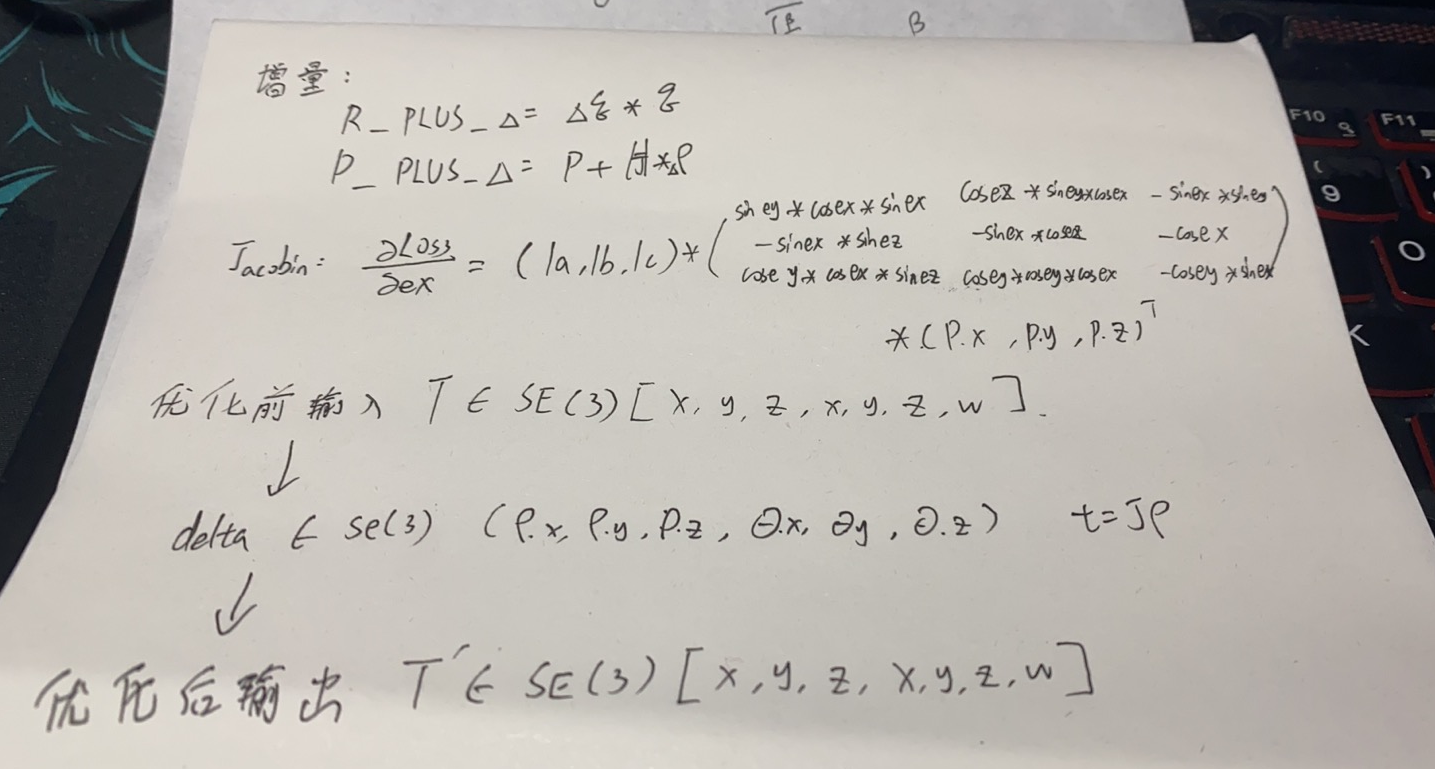 B
增量:
R_PLUS_Δ= Δq * q
P_PLUS_Δ= P+ H*Δρ
Jacobin: ∂Loss/∂ex = (la,lb,lc)*( sin ey * cosex * sin ex cosez * siney*cosex - sinex *siney
- sinex * sinez -sinex *cosez -cose x
cose y* cos ex * sin ez cosey*cosey*cosex -cosey *sinex )
*(P.x , P.y , P.z)ᵀ
优化前输入 T ∈ SE(3) [ x, y, z, x, y, z, w ].
↓
delta ∈ se(3) (ρ.x, ρ.y, ρ.z, θ.x, θy, θ.z) t=Jρ
↓
优化后输出 T′∈ SE(3) [ x, y, z, x, y, z, w ]
F10
F11
(
9
)
O
K